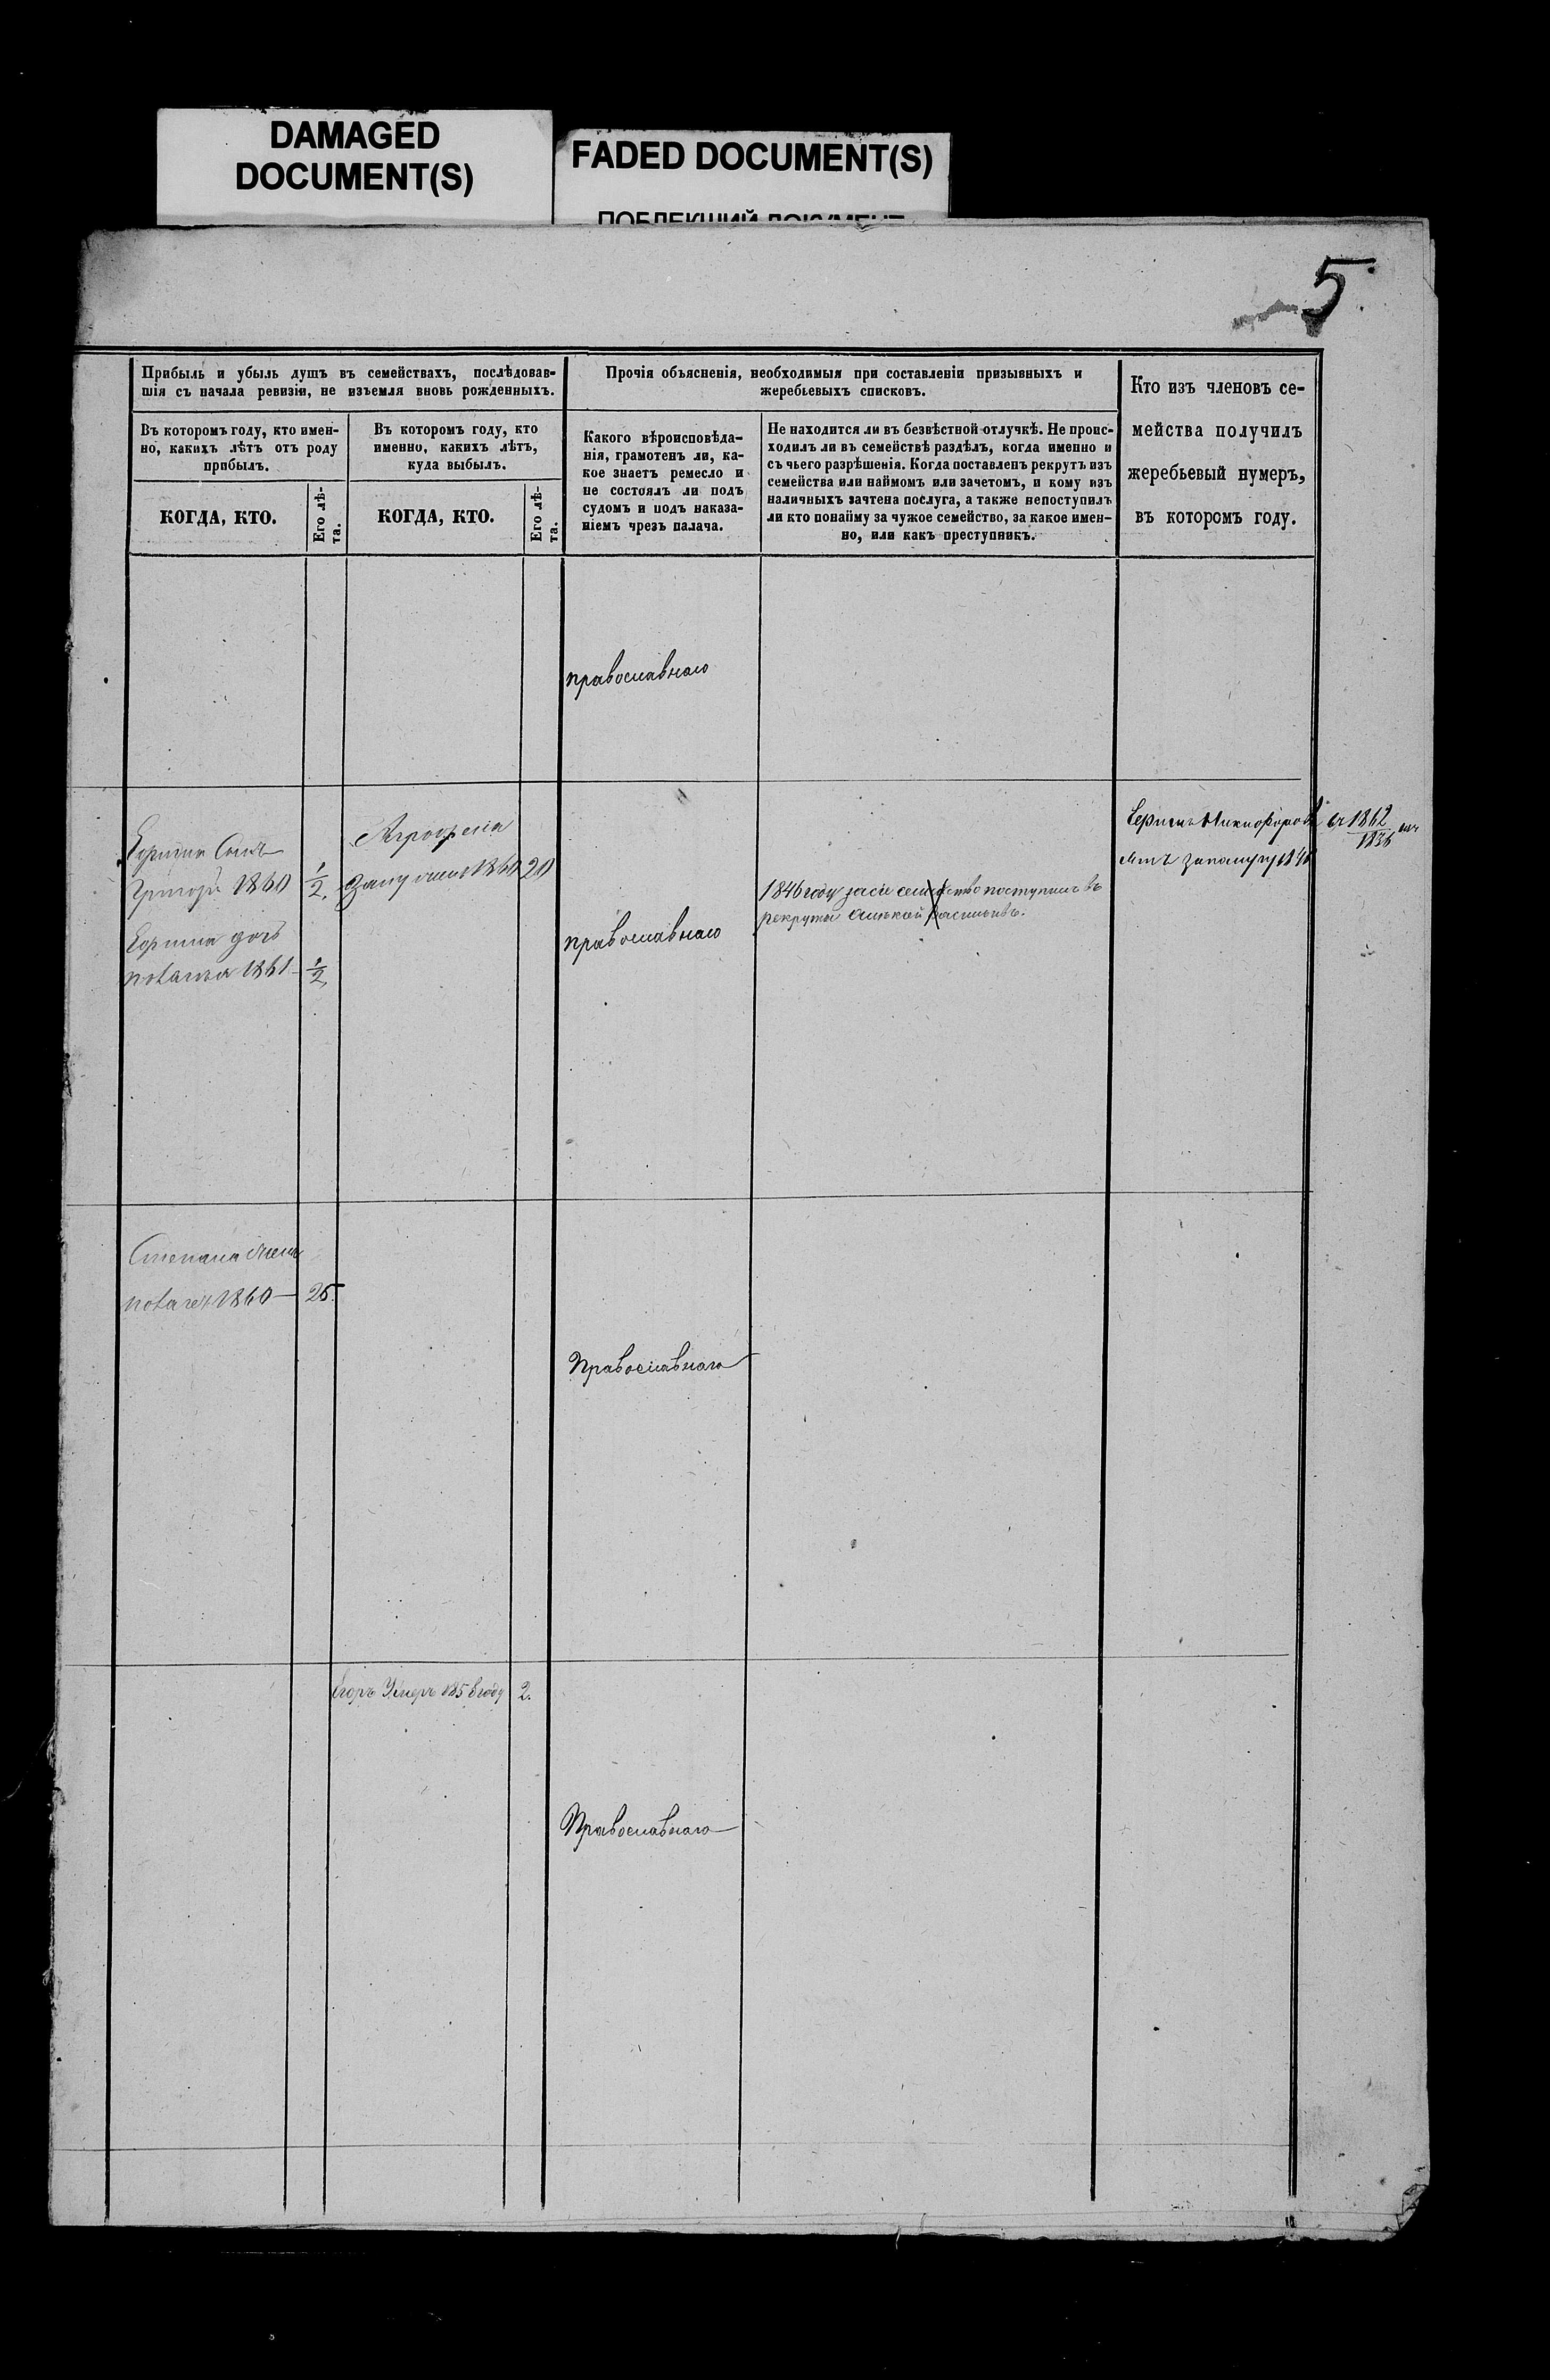 DAMAGED
DOCUMENT(S)
FADED DOCUMENT(S)
ПОБЛЕКШИЙ ДОКУМЕНТ
5.
Прибыль и убыль душъ въ семействахъ, послѣдовав-
шія съ начала ревизіи, не изъемля вновь рожденныхъ.
Въ которомъ году, кто имен-
но, какихъ лѣтъ отъ роду
прибылъ.
КОГДА, КТО.
Его лѣ-
та.
Въ которомъ году, кто
именно, какихъ лѣтъ,
куда выбылъ.
КОГДА, КТО.
Его лѣ-
та.
Прочія объясненія, необходимыя при составленіи призывныхъ и
жеребьевыхъ списковъ.
Какого вѣроисповѣда-
нія, грамотенъ ли, ка-
кое знаетъ ремесло и
не состоялъ ли подъ
судомъ и подъ наказа-
ніемъ чрезъ палача.
Не находится ли въ безвѣстной отлучкѣ. Не проис-
ходилъ ли въ семействѣ раздѣлъ, когда именно и
съ чьего разрѣшенія. Когда поставленъ рекрутъ изъ
семейства или наймомъ или зачетомъ, и кому изъ
наличныхъ зачтена послуга, а также непоступилъ
ли кто понайму за чужое семейство, за какое имен-
но, или какъ преступникъ.
Кто изъ членовъ се-
мейства получилъ
жеребьевый нумеръ,
въ которомъ году.
православнаго
Сынъ
Григорй 1860 1/2
дочь
1861 1/2
Агрофена
1860 20
православнаго
1846 году засіе семейство поступилъ въ
рекруты Алексей Васильевъ.
Никифоровъ 1862
1836
Степана жена
1860 — 25.
Православнаго
Егоръ Умеръ 1858 году 2.
Православнаго